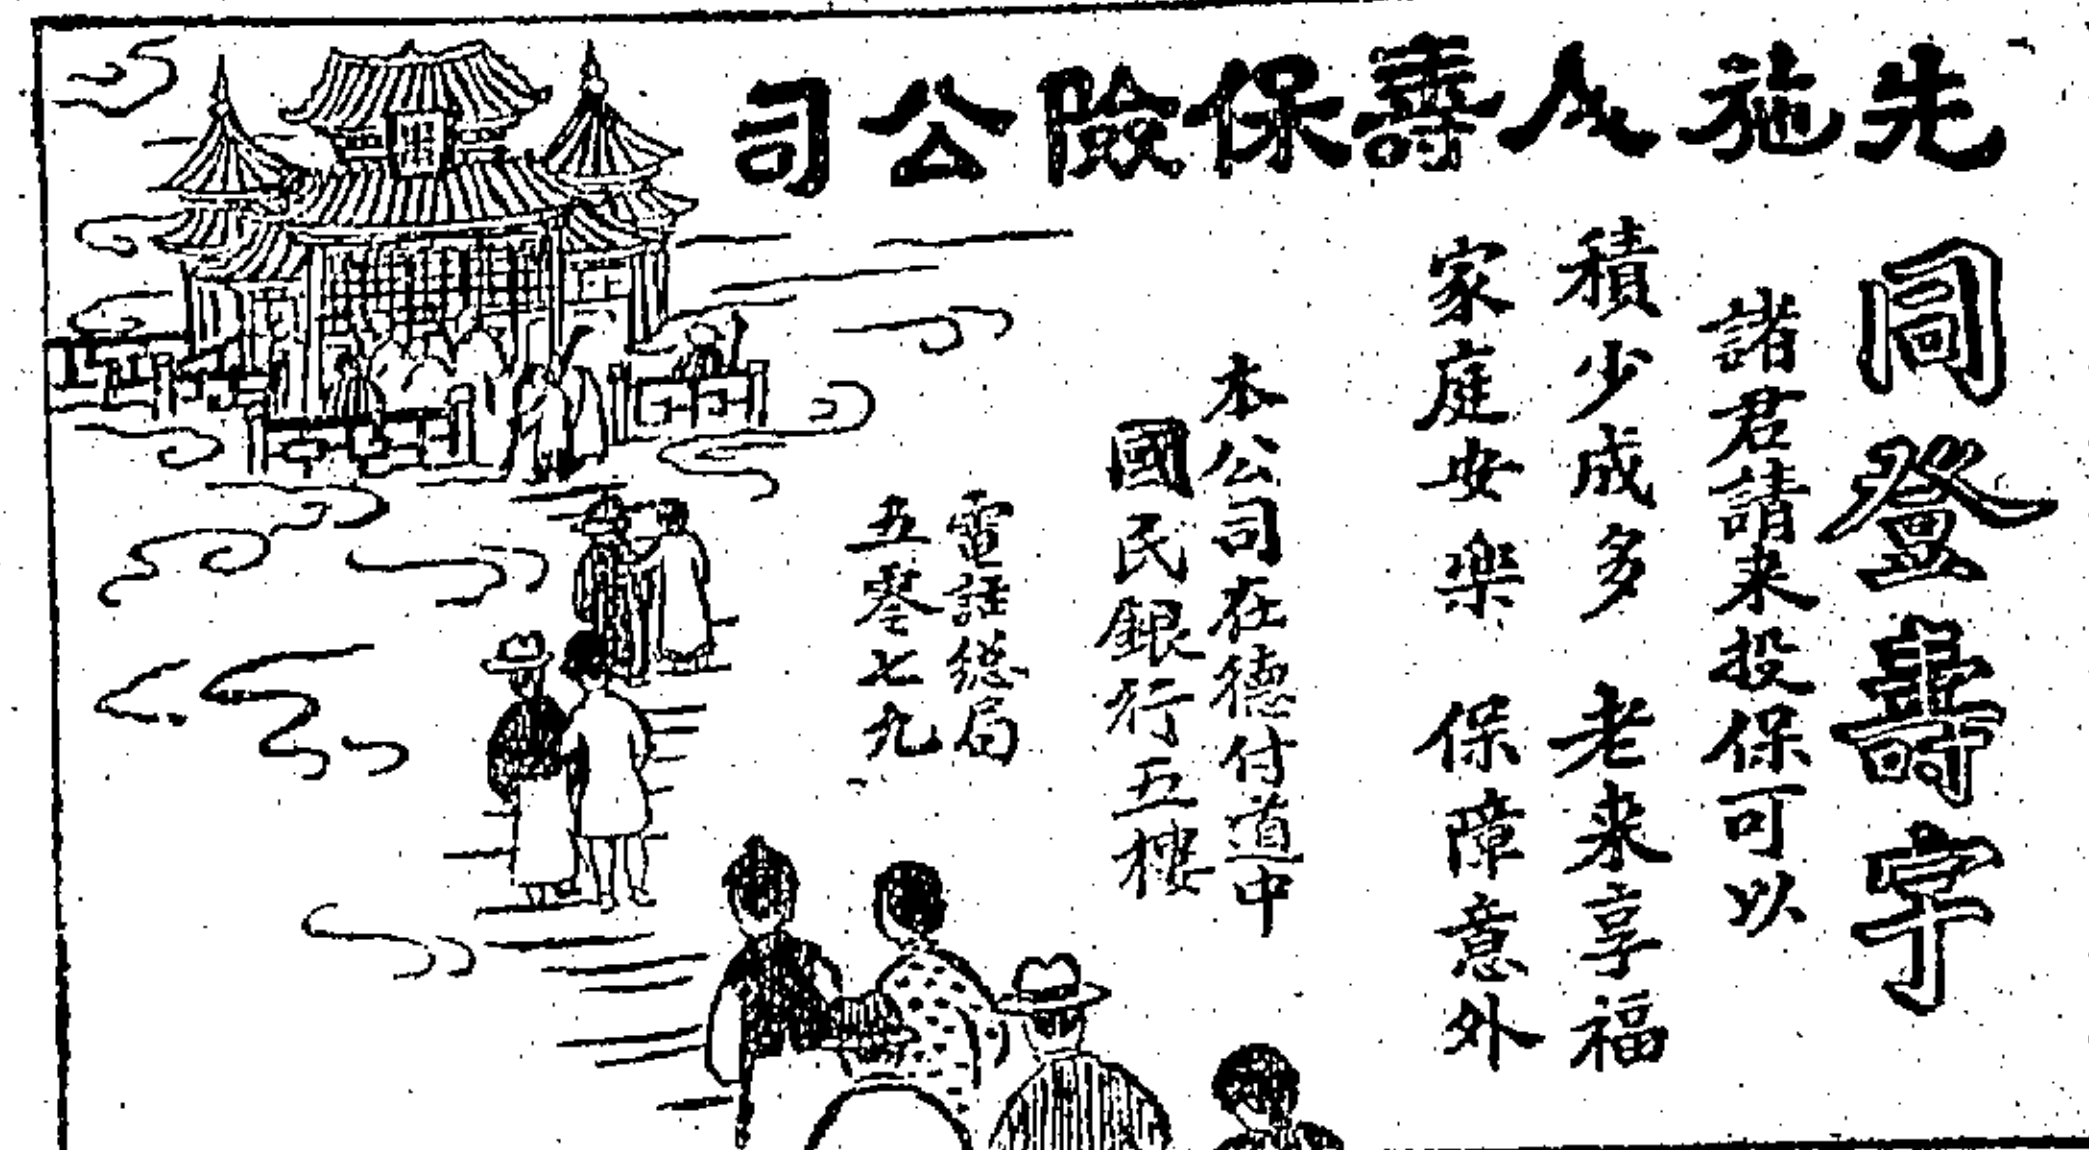 先施人壽保險公司
同登壽字
諸君請来投保可以
積少成多 老来享福
家庭安樂 保障意外
本公司在德付道中
國民銀行五樓
電話總局
五零七九